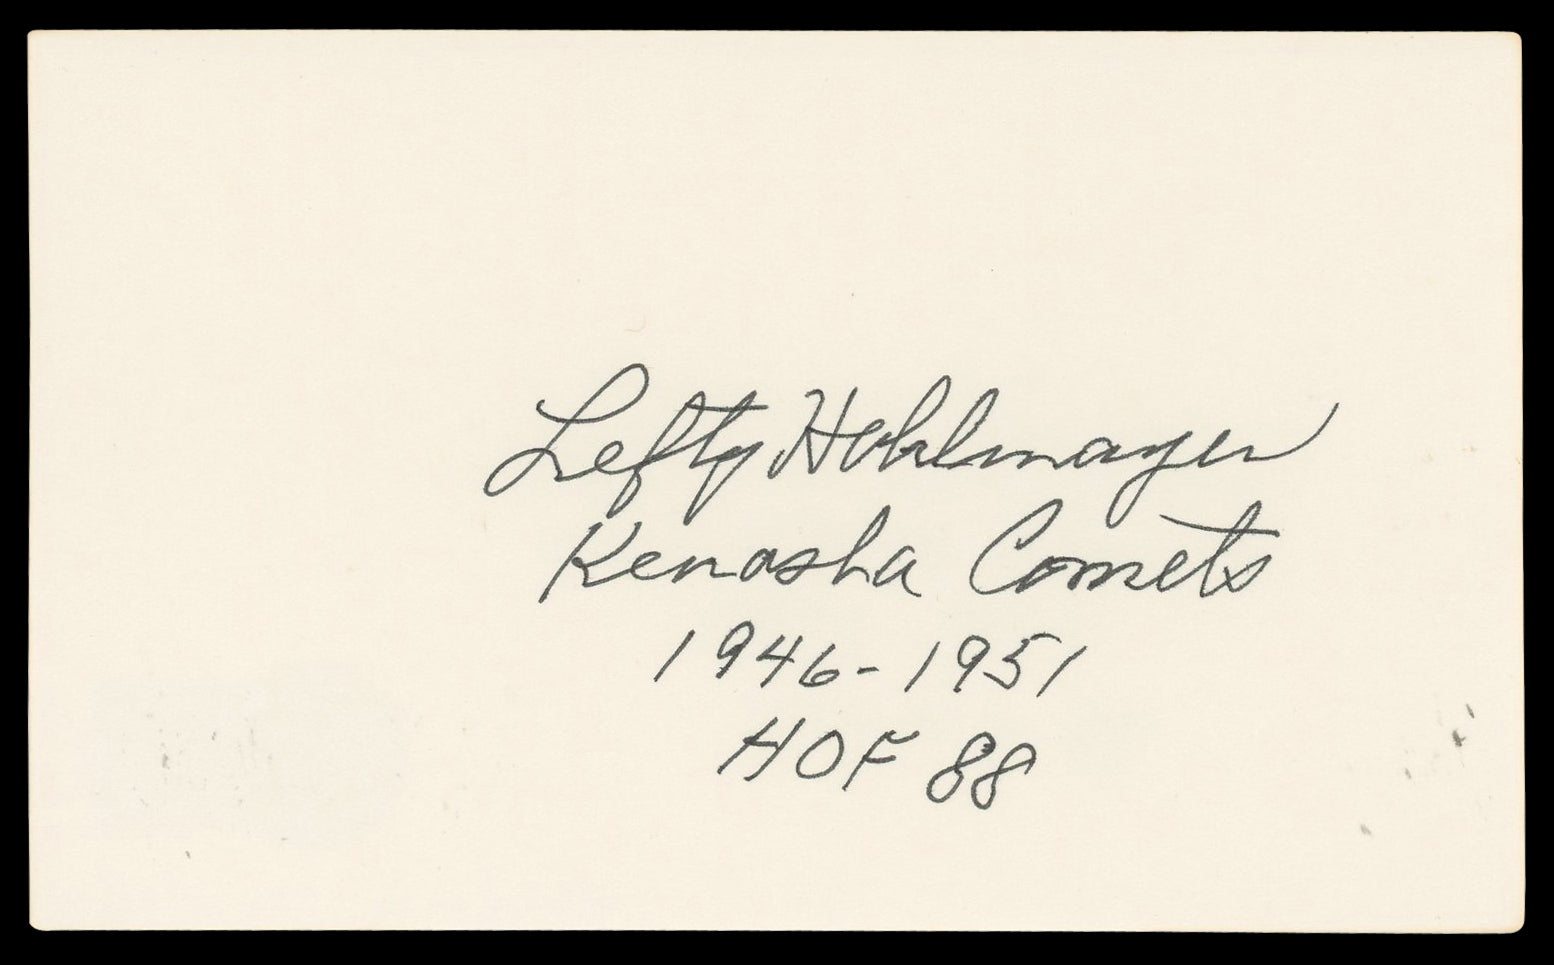 Lefty Hohlmayer
Kenosha Comets
1946-1951
HOF 88